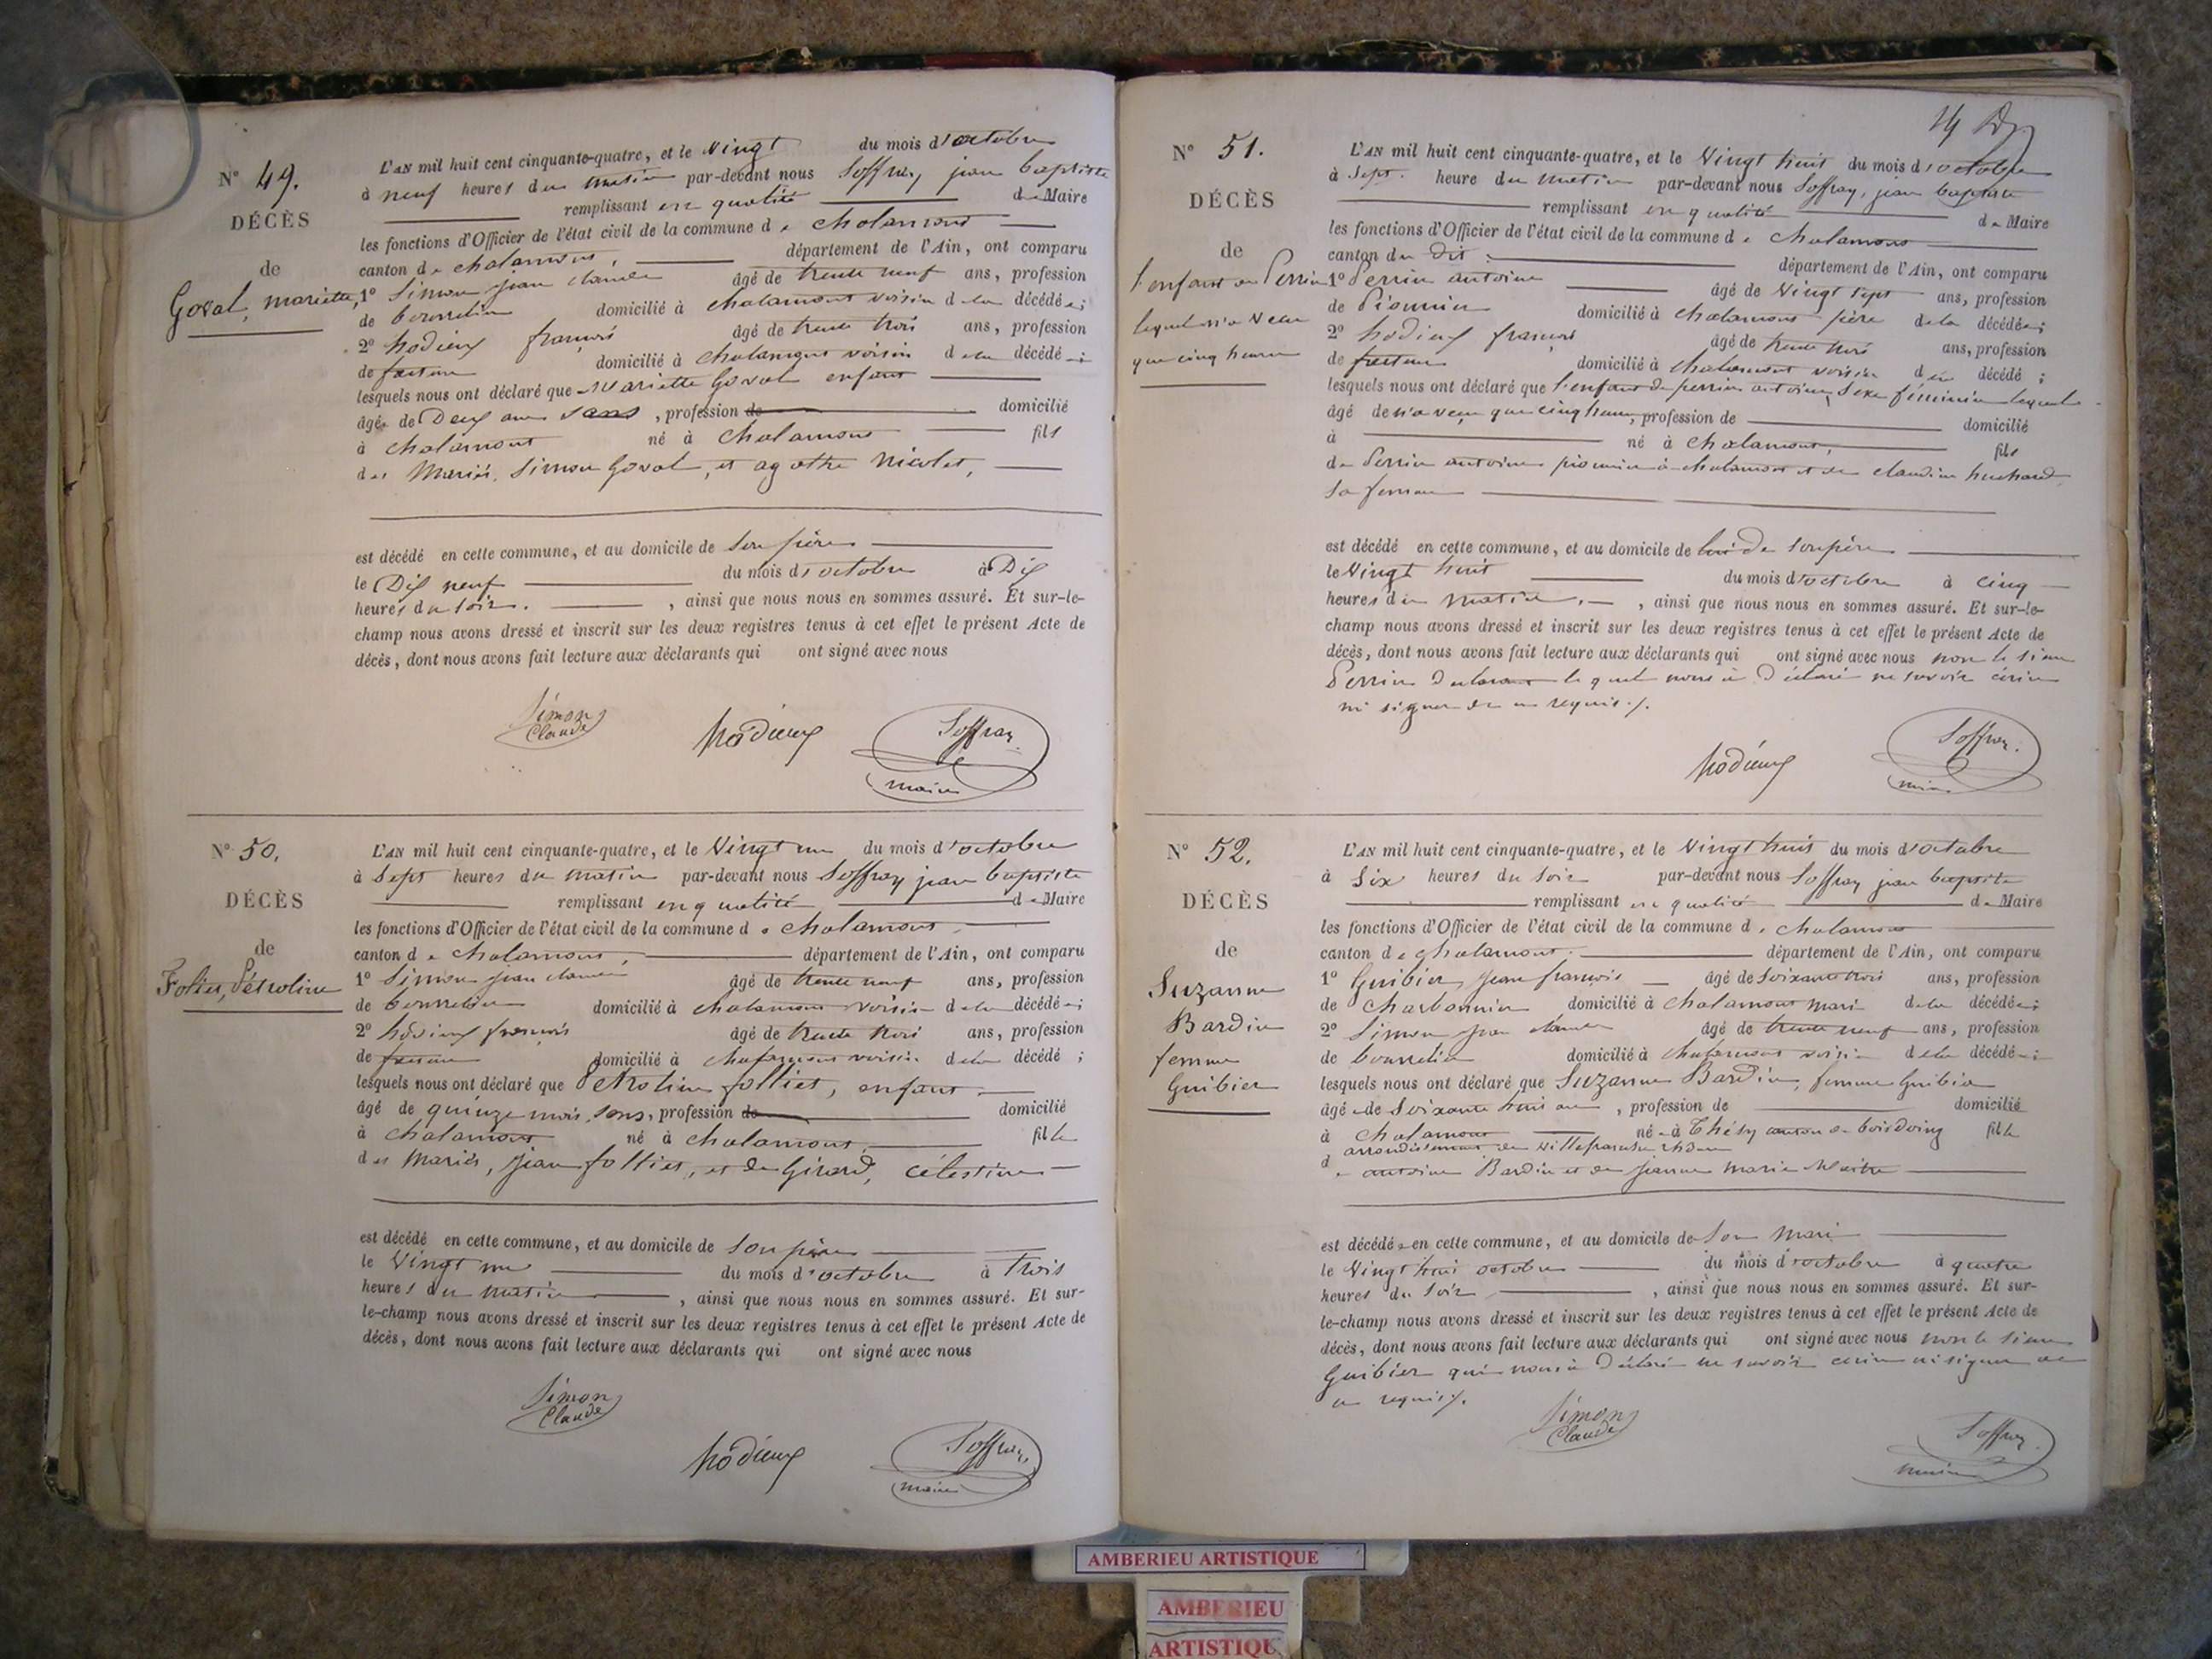 N° 49.
DÉCÈS
de
Goval, mariette,
L'AN mil huit cent cinquante-quatre, et le Vingt du mois d'octobre
à neuf heures du matin par-devant nous Soffray jean baptiste
remplissant en qualité de Maire
les fonctions d'Officier de l'état civil de la commune de chalamont
canton de chalamont, département de l'Ain, ont comparu
1° Simon jean claude âgé de trente neuf ans, profession
de bourrelier domicilié à chalamont voisin de la décédée;
2° hodieux françois âgé de trente trois ans, profession
de facteur domicilié à chalamont voisin de la décédée;
lesquels nous ont déclaré que Mariette Goval enfant
âgée de Deux ans sans, profession de domicilié
à chalamont né à chalamont fils
des Mariés, Simon Goval, et agathe Nicolet,
est décédé en cette commune, et au domicile de son père
le Dix neuf du mois d'octobre à Dix
heures du soir. , ainsi que nous nous en sommes assuré. Et sur-le-
champ nous avons dressé et inscrit sur les deux registres tenus à cet effet le présent Acte de
décès, dont nous avons fait lecture aux déclarants qui ont signé avec nous
Simon
Claude
hodieux
Soffray
maire
N° 50.
DÉCÈS
de
Folliet, Pétroline
L'AN mil huit cent cinquante-quatre, et le Vingt un du mois d'octobre
à Sept heures du matin par-devant nous Soffray jean baptiste
remplissant en qualité de Maire
les fonctions d'Officier de l'état civil de la commune de chalamont
canton de chalamont, département de l'Ain, ont comparu
1° Simon jean claude âgé de trente neuf ans, profession
de bourrelier domicilié à chalamont voisin de la décédée;
2° hodieux françois âgé de trente trois ans, profession
de facteur domicilié à chalamont voisin de la décédé;
lesquels nous ont déclaré que Pétroline folliet, enfant
âgé de quinze mois, sans, profession de domicilié
à chalamont né à chalamont, fille
des Mariés, jean folliet, et de Girard, célestine
est décédé en cette commune, et au domicile de son père
le Vingt un du mois d'octobre à trois
heures du matin , ainsi que nous nous en sommes assuré. Et sur-
le-champ nous avons dressé et inscrit sur les deux registres tenus à cet effet le présent Acte de
décès, dont nous avons fait lecture aux déclarants qui ont signé avec nous
Simon
Claude
hodieux
Soffray
maire
N° 51.
DÉCÈS
de
l'enfant de Perrin
lequel n'a vécu
que cinq heures
L'AN mil huit cent cinquante-quatre, et le Vingt huit du mois d'octobre
à Sept heure du matin par-devant nous Soffray, jean baptiste
remplissant en qualité de Maire
les fonctions d'Officier de l'état civil de la commune de chalamont
canton du dit département de l'Ain, ont comparu
1° Perrin antoine âgé de Vingt sept ans, profession
de Pionnier domicilié à chalamont père de la décédée;
2° hodieux françois âgé de trente trois ans, profession
de facteur domicilié à chalamont voisin de la décédé;
lesquels nous ont déclaré que l'enfant de perrin antoine, Sexe féminin lequel
âgé de n'a vécu que cinq heures, profession de domicilié
à né à chalamont, fils
de Perrin antoine pionnier à chalamont et de claudine huchard
sa femme
est décédé en cette commune, et au domicile de son père
le Vingt huit du mois d'octobre à cinq
heures du matin. , ainsi que nous nous en sommes assuré. Et sur-le-
champ nous avons dressé et inscrit sur les deux registres tenus à cet effet le présent Acte de
décès, dont nous avons fait lecture aux déclarants qui ont signé avec nous non le sieur
Perrin déclarant lequel nous a déclaré ne savoir écrire
ni signer de ce requis.
hodieux
Soffray
maire
N° 52.
DÉCÈS
de
Suzanne
Bardin
femme
Guibier
L'AN mil huit cent cinquante-quatre, et le Vingt huit du mois d'octobre
à Six heures du soir par-devant nous Soffray jean baptiste
remplissant en qualité de Maire
les fonctions d'Officier de l'état civil de la commune de chalamont
canton de chalamont. département de l'Ain, ont comparu
1° Guibier, jean françois âgé de Soixante trois ans, profession
de Charbonnier domicilié à chalamont mari de la décédée;
2° Simon jean claude âgé de trente neuf ans, profession
de bourrelier domicilié à chalamont voisin de la décédée;
lesquels nous ont déclaré que Suzanne Bardin, femme Guibier
âgée de Soixante huit ans, profession de domicilié
à chalamont née à Thésy canton de boisdoing fille
arrondissement de Villefranche Rhône
de antoine Bardin et de jeanne marie Maitre
est décédée en cette commune, et au domicile de son mari
le Vingt huit octobre du mois d'octobre à quatre
heures du soir , ainsi que nous nous en sommes assuré. Et sur-
le-champ nous avons dressé et inscrit sur les deux registres tenus à cet effet le présent Acte de
décès, dont nous avons fait lecture aux déclarants qui ont signé avec nous non le sieur
Guibier qui nous a déclaré ne savoir écrire ni signer de
ce requis.
Simon
Claude
Soffray
maire
AMBERIEU ARTISTIQUE
AMBERIEU
ARTISTIQUE